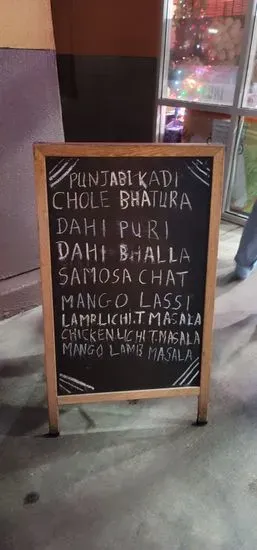 PUNJABI KADI
CHOLE BHATURA
DAHI PURI
DAHI BHALLA
SAMOSA CHAT
MANGO LASSI
LAMB LICHI.T MASALA
CHICKEN LICHI T.MASALA
MANGO LAMB MASALA